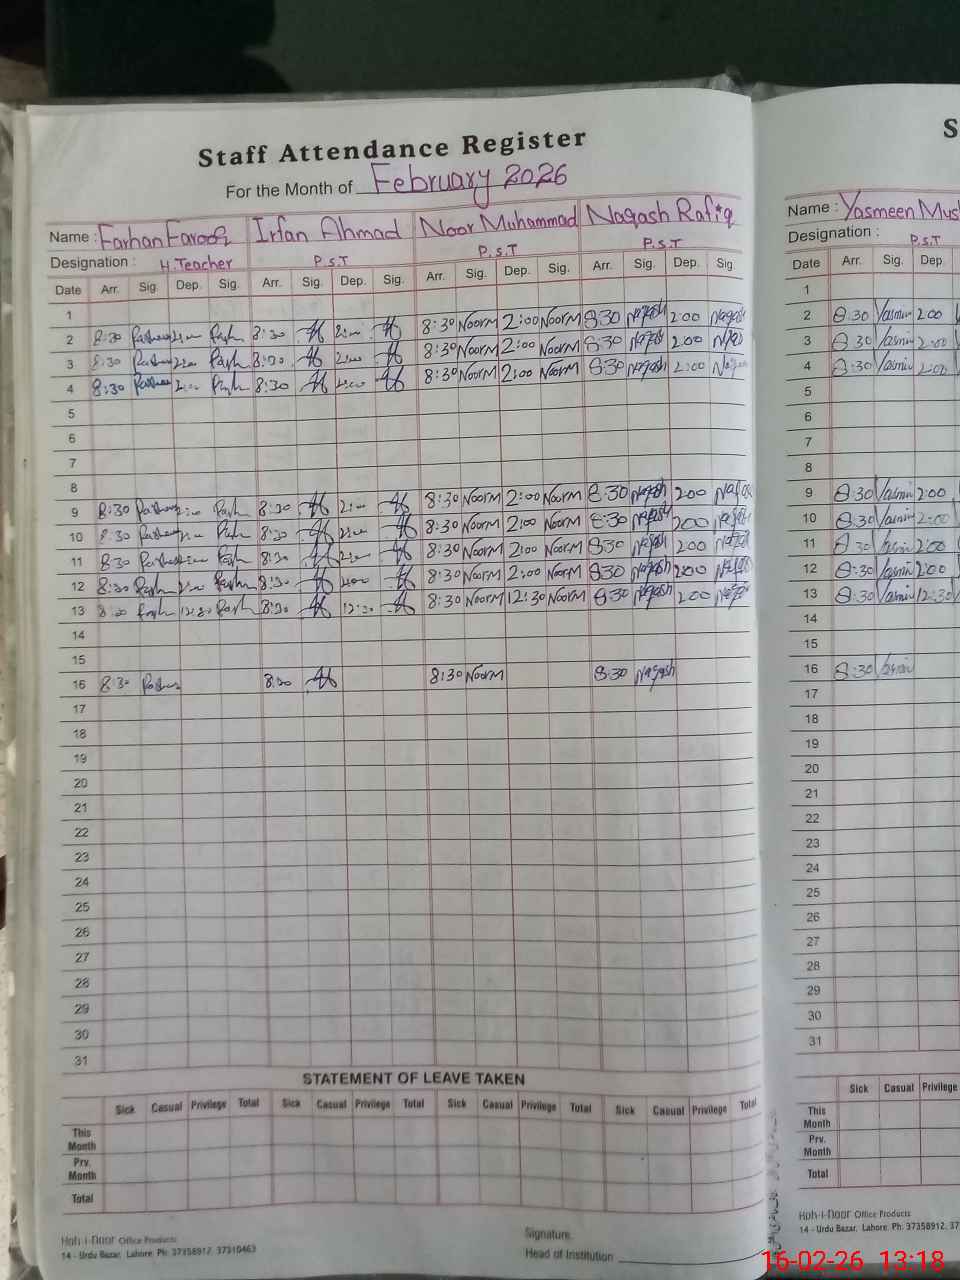 Staff Attendance Register
For the Month of February 2026
Name : Farhan Farooq Irfan Ahmad Noor Muhammad Naqash Rafiq
Designation : H.Teacher P.S.T P.S.T P.S.T
Date Arr. Sig. Dep. Sig. Arr. Sig. Dep. Sig. Arr. Sig. Dep. Sig. Arr. Sig. Dep. Sig.
1
2 8:30 2:00 8:30 2:00 8:30 Noorm 2:00 Noorm 8:30 Naqash 200 Naqash
3 8:30 2:00 8:30 2:00 8:30 Noorm 2:00 Noorm 8:30 Naqash 200
4 8:30 2:00 8:30 2:00 8:30 Noorm 2:00 Noorm 8:30 Naqash 2:00
5
6
7
8
9 8:30 2:00 8:30 2:00 8:30 Noorm 2:00 Noorm 8:30 Naqash 200
10 8:30 2:00 8:30 2:00 8:30 Noorm 2:00 Noorm 8:30 Naqash 200
11 8:30 2:00 8:30 2:00 8:30 Noorm 2:00 Noorm 8:30 Naqash 200
12 8:30 2:00 8:30 2:00 8:30 Noorm 2:00 Noorm 8:30 Naqash 200
13 8:30 12:30 8:30 12:30 8:30 Noorm 12:30 Noorm 8:30 Naqash 200
14
15
16 8:30 8:30 8:30 Noorm 8:30 Naqash
17
18
19
20
21
22
23
24
25
26
27
28
29
30
31
STATEMENT OF LEAVE TAKEN
Sick Casual Privilege Total Sick Casual Privilege Total Sick Casual Privilege Total Sick Casual Privilege Total
This Month
Prv. Month
Total
Koh-i-Noor Office Products
14 - Urdu Bazar, Lahore. Ph: 37358912, 37310463
Signature.
Head of Institution
S
Name : Yasmeen Mus
Designation : P.S.T
Date Arr. Sig. Dep.
1
2 8:30 Yasmin 200
3 8:30 Yasmin 2:00
4 8:30 Yasmin 2:00
5
6
7
8
9 8:30 Yasmin 2:00
10 8:30 Yasmin 2:00
11 8:30 Yasmin 2:00
12 8:30 Yasmin 2:00
13 8:30 Yasmin 12:30
14
15
16 8:30 Yasmin
17
18
19
20
21
22
23
24
25
26
27
28
29
30
31
Sick Casual Privilege
This Month
Prv. Month
Total
Koh-i-Noor Office Products
14 - Urdu Bazar, Lahore. Ph: 37358912, 37
16-02-26 13:18